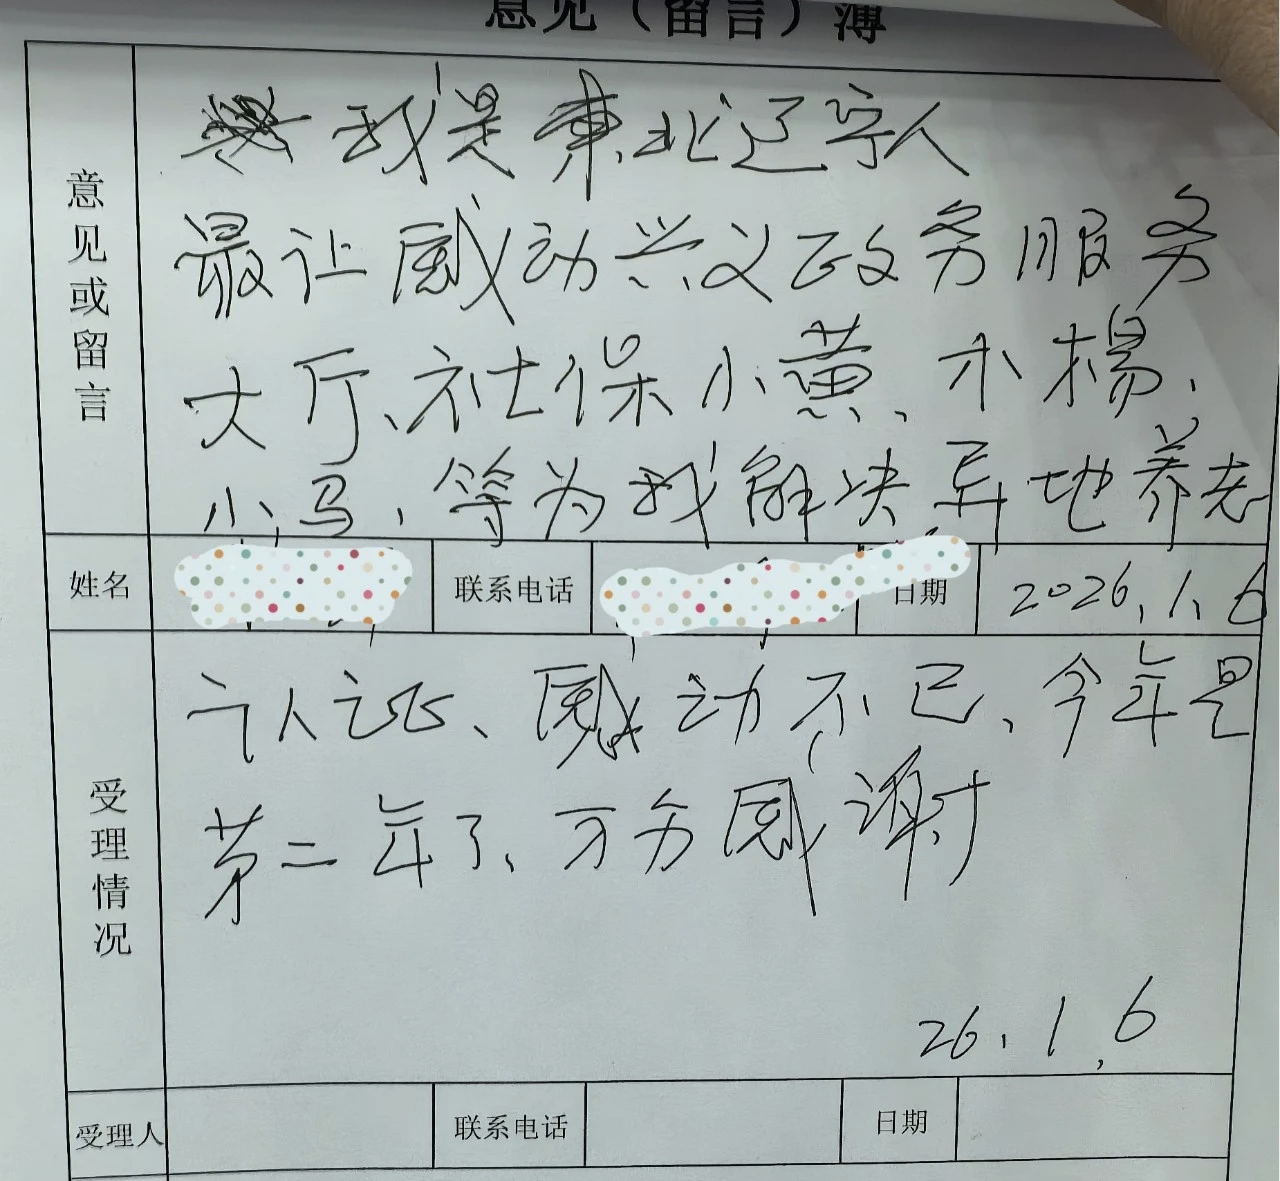 意见（留言）薄
意见或留言
我是東北辽宁人
最让感动兴义政务服务
大厅、社保小黄、木楊、
小马、等为我解决异地养老
姓名 联系电话 日期 2026.1.6
受理情况
认证、感动不已、今年是
第二年了、万分感谢
26.1.6
受理人 联系电话 日期